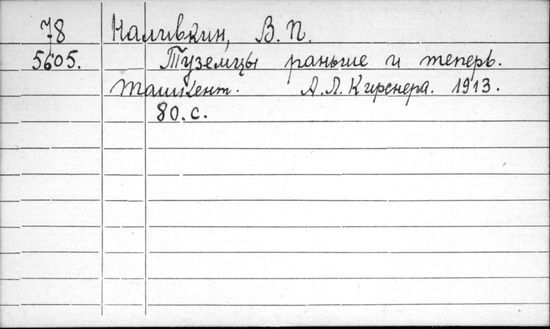 78 Наливкин, В. П.
5605. Туземцы раньше и теперь.
Ташкент. А. Л. Кирснера. 1913.
80. с.